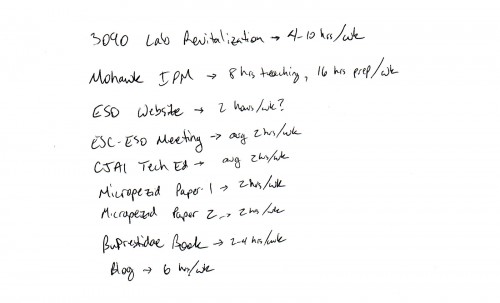 3090 Lab Revitalization → 4-10 hrs/wk
Mohawk IPM → 8 hrs teaching, 16 hrs prep/wk
ESD Website → 2 hours/wk?
ESC-ESD Meeting → avg 2 hrs/wk
CJAI Tech Ed → avg 2 hrs/wk
Micropezid Paper 1 → 2 hrs/wk
Micropezid Paper 2 → 2 hrs/wk
Buprestidae Book → 2-4 hrs/wk
Blog → 6 hrs/wk